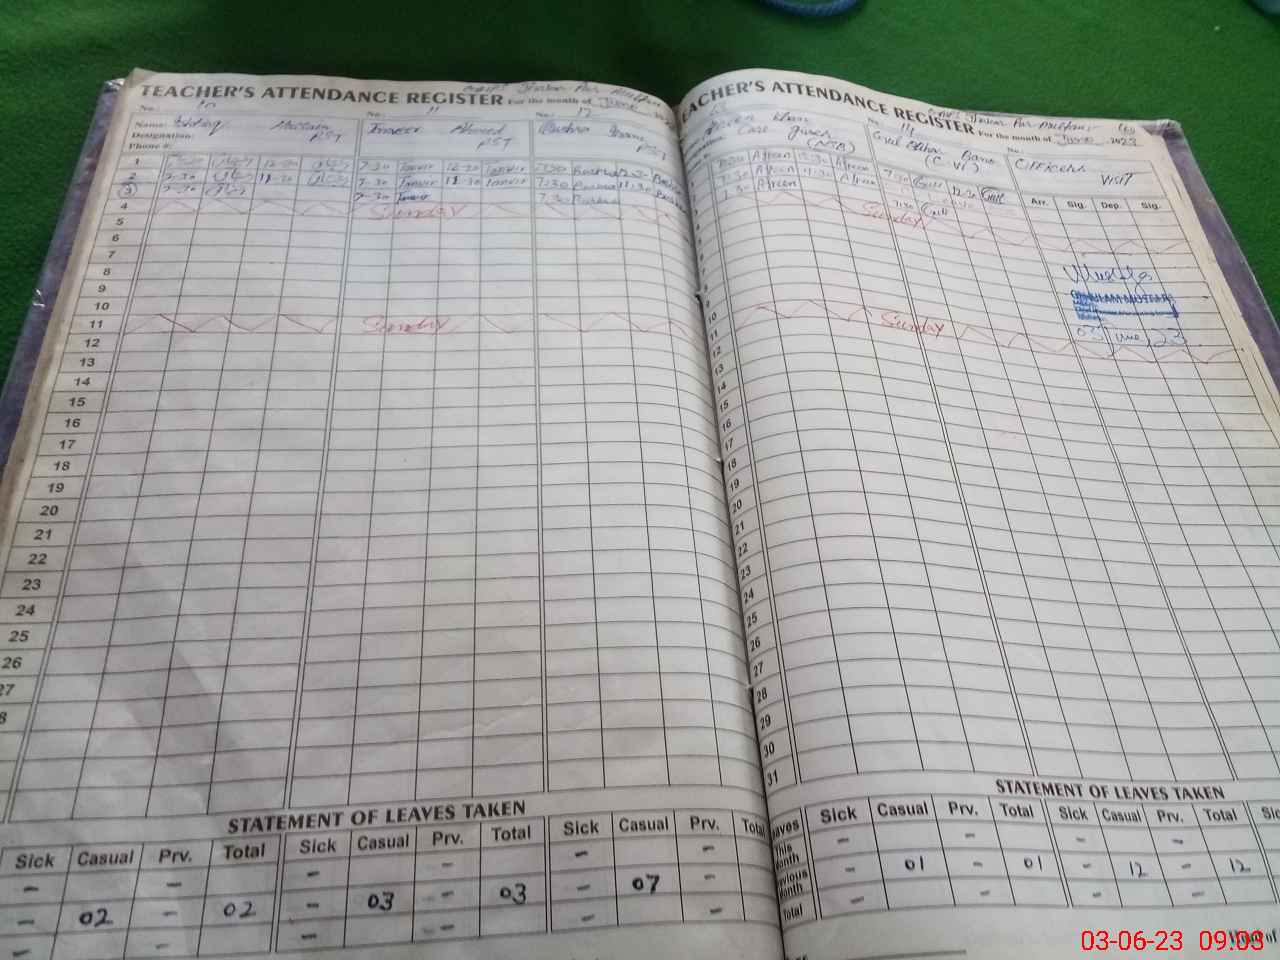 TEACHER'S ATTENDANCE REGISTER For the month of June
No: 10 No: 11 No: 12
Name: Hussain Tanveer Ahmed Bushra Bano
Designation: PST PST PST
Phone #:
1 7:30 12:30 7:30 Tanvir 12:30 Tanvir 7:30 Bushra 12:30
2 7:30 11:30 7:30 Tanvir 11:30 Tanvir 7:30 Bushra 11:30
3 7:30 7:30 7:30 Bushra
4 Sunday
5
6
7
8
9
10
11 Sunday
12
13
14
15
16
17
18
19
20
21
22
23
24
25
26
27
8
STATEMENT OF LEAVES TAKEN
Sick Casual Prv. Total Sick Casual Prv. Total Sick Casual Prv. Total
- - - - - -
- 02 - 02 - 03 - 03 - 07 -
- - - - - -
EACHER'S ATTENDANCE REGISTER For the month of June 2023
No: 14 No:
Khan Gul Bano OFFICERS
Care Giver (C-IV) VISIT
7:30 Afreen 12:30 Afreen 7:30 Gull 12:30 Gull
7:30 Afreen 11:30 Afreen
7:30 Afreen 7:30 Gull
Arr. Sig. Dep. Sig.
Sunday
GHULAM MUSTAFA
03 June 23
Sunday
10
11
12
13
14
15
16
17
18
19
20
21
22
23
24
25
26
27
28
29
30
31
STATEMENT OF LEAVES TAKEN
Leaves Sick Casual Prv. Total Sick Casual Prv. Total
This Month - - - -
Previous Month - 01 - 01 - 12 - 12
Total - - - -
03-06-23 09:03